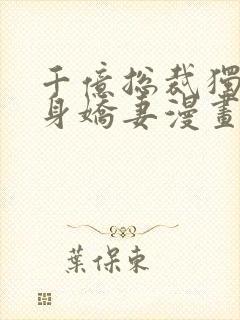 千億総裁獨
身嬌妻漫畫
葉保東